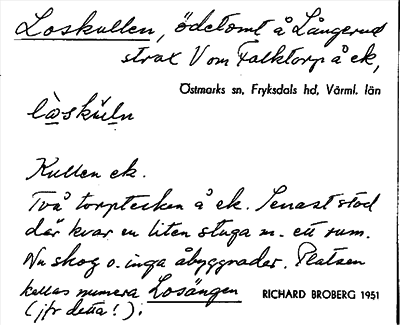 Loskullen, ödetomt å Långerud
strax V om Falktorp å ek,
Östmarks sn, Fryksdals hd, Värml. län
Kullen ek.
Två torptecken å ek. Senast stod
där kvar en liten stuga m. ett rum.
Nu skog o. inga åbyggnader. Platsen
kallas numera Losängen
RICHARD BROBERG 1951
(jfr detta!).